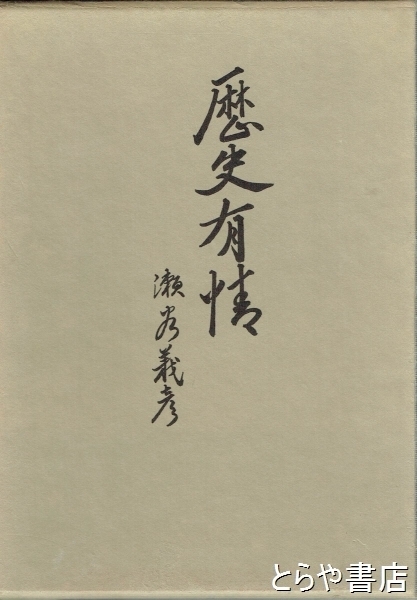 歴史有情
瀬谷義彦
とらや書店